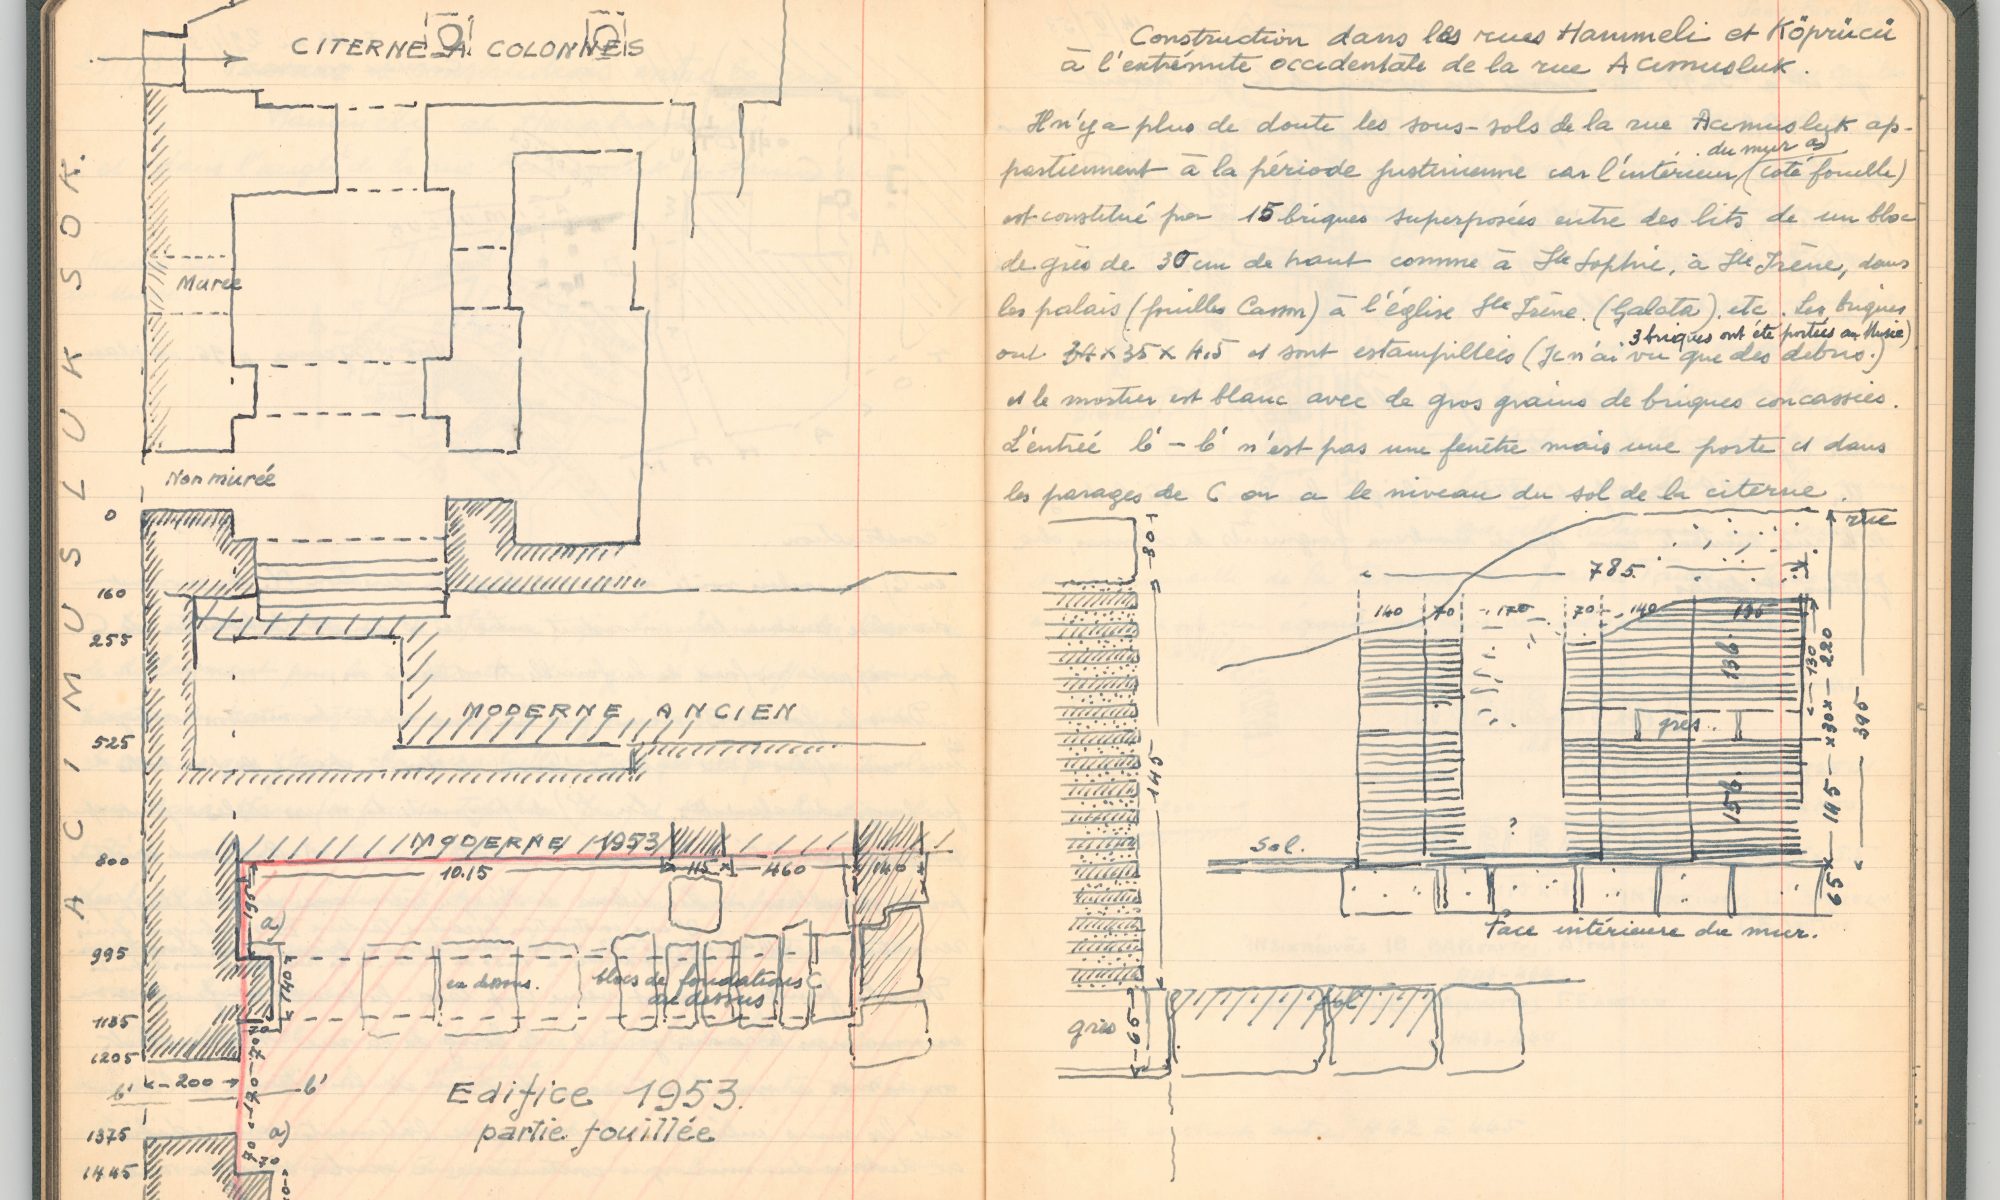 CITERNE A COLONNES
ACIMUSLUK SOK.
Murée
Non murée
0
160
255
525
800
995
1135
1205
1375
1445
MODERNE ANCIEN
MODERNE 1953
10.15
115
460
140
195
a)
140
en dessous.
blocs de fondations C
au dessus
70
70
b' 200 b'
120
70
a)
70
Edifice 1953.
partie fouillée
Construction dans les rues Hammeli et Köprücü
à l'extrémité occidentale de la rue Acımusluk.
Il n'y a plus de doute les sous-sols de la rue Acımusluk ap-
partiennent à la période justinienne car l'intérieur du mur a) (coté fouille)
est constitué par 15 briques superposées entre des lits de un bloc
de grès de 30 cm de haut comme à Ste Sophie, à Ste Irène, dans
les palais (fouilles Casson) à l'église Ste Irène. (Galata). etc. Les briques
ont 34 x 35 x 4.5 et sont estampillées (Je n'ai vu que des debris.) 3 briques ont été portées au Musée)
et le mortier est blanc avec de gros grains de briques concassées.
L'entrée b' - b' n'est pas une fenêtre mais une porte et dans
les parages de C on a le niveau du sol de la citerne.
30
145
grès
65
Sol
rue
785
140 70 170 70 140 195
13 b.
grès.
15 b.
?
Sol.
130
220
30
145
395
65
face intérieure du mur.